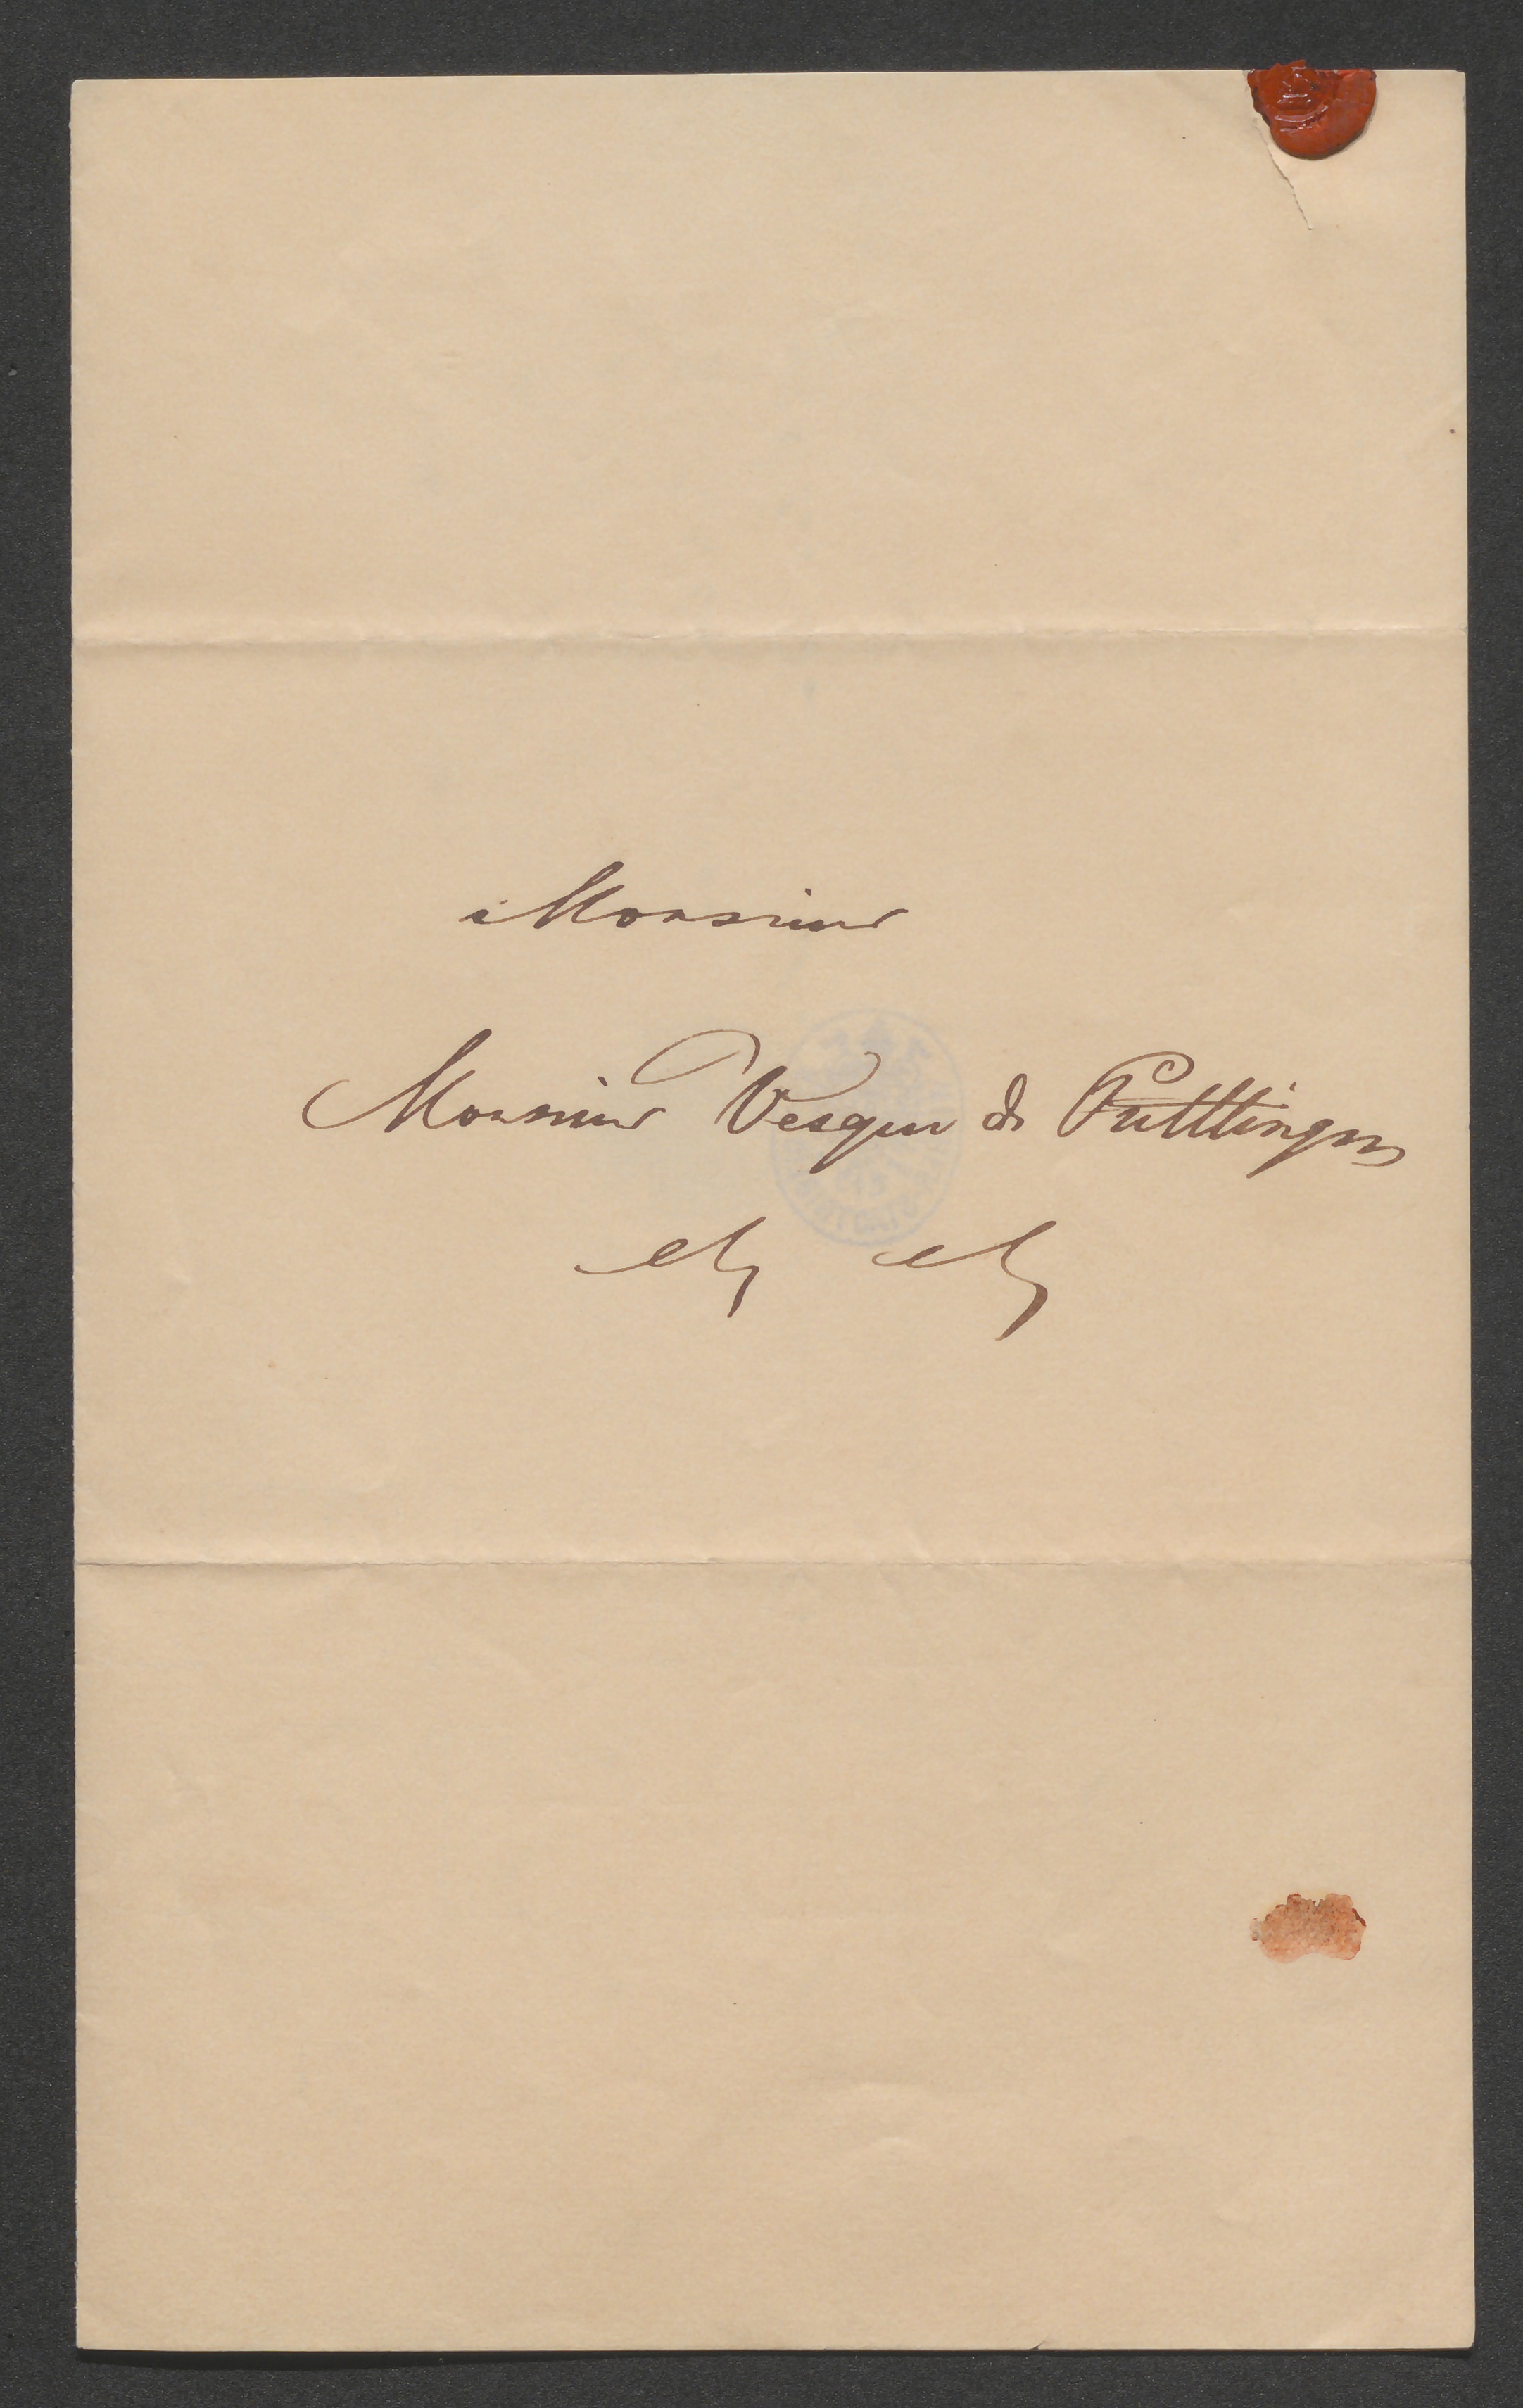 à Monsieur
Monsieur Vesque de Püttlingen
etz etz